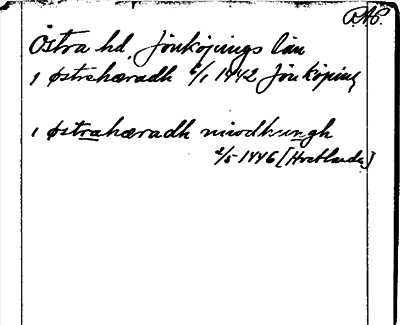 RAP.
Östra hd, Jönköpings län
i østrehæradh 6/1 1442 Jönköping
i østrahæradh niwdhungh
2/5 1446 [Hvetlanda]